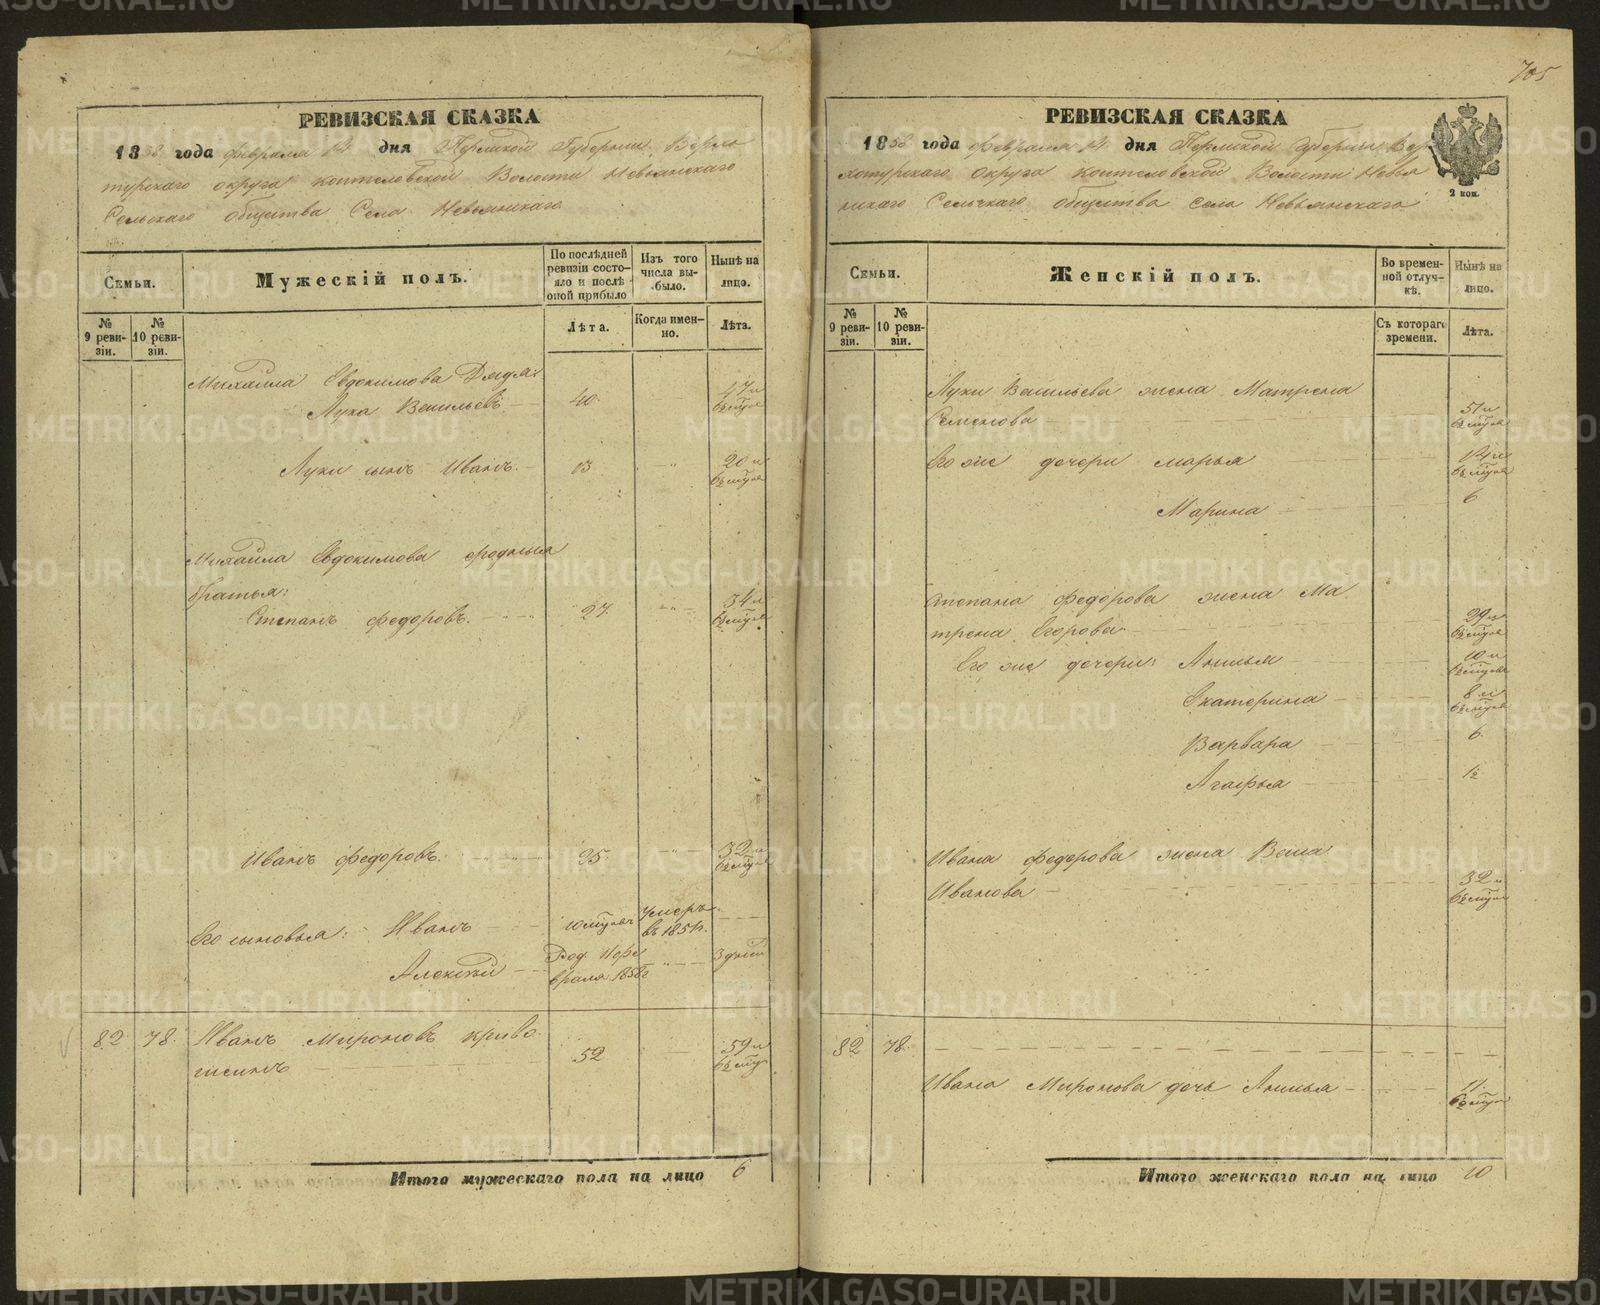 705
РЕВИЗСКАЯ СКАЗКА
1858 года февраля 14 дня Пермской Губернии Верхо
турскаго округа коптеловской Волости Невьянскаго
Сельскаго общества Села Невьянскаго
Семьи.
Мужескій полъ.
По послѣдней ревизіи состояло и послѣ оной прибыло
Изъ того числа выбыло.
Нынѣ на лицо.
№ 9 ревизіи.
№ 10 ревизіи.
Лѣта.
Когда именно.
Лѣта.
Михайла Евдокимова Дядя:
Лука Васильевъ 40. 47 и
Луки сынъ Иванъ. 13 20 и
Михайла Евдокимова сродныя
братья:
Степанъ федоровъ. 27. 34 и
Иванъ федоровъ. 25. 32 и
Его сыновья: Иванъ Умеръ
въ 1851 г.
Алексѣй Род. 11 фе 3 дней
враля 1858 г
82 78. Иванъ Мироновъ криво 59 и
52
Итого мужескаго пола на лицо 6
РЕВИЗСКАЯ СКАЗКА
1858 года февраля 14 дня Пермской губерніи Вер
хотурскаго округа коптеловской Волости Невья
нскаго Сельскаго общества села Невьянскаго
2 коп.
Семьи.
Женскій полъ.
Во временной отлучкѣ.
Нынѣ на лицо.
№ 9 ревизіи.
№ 10 ревизіи.
Съ котораго времени.
Лѣта.
Луки Васильева жена Матрена
Семенова 51 и
Его же дочери марья 14 и
Марина 6
Степана федорова жена Ма
трена Егорова 29 и
Его же дочери: Анисья 10 и
Екатерина 8 и
Варвара 6.
Агафья 1½
Ивана федорова жена Васса
Иванова 32 и
82 78.
Ивана Миронова дочь Анисья
Итого женскаго пола на лицо 10
METRIKI.GASO-URAL.RU